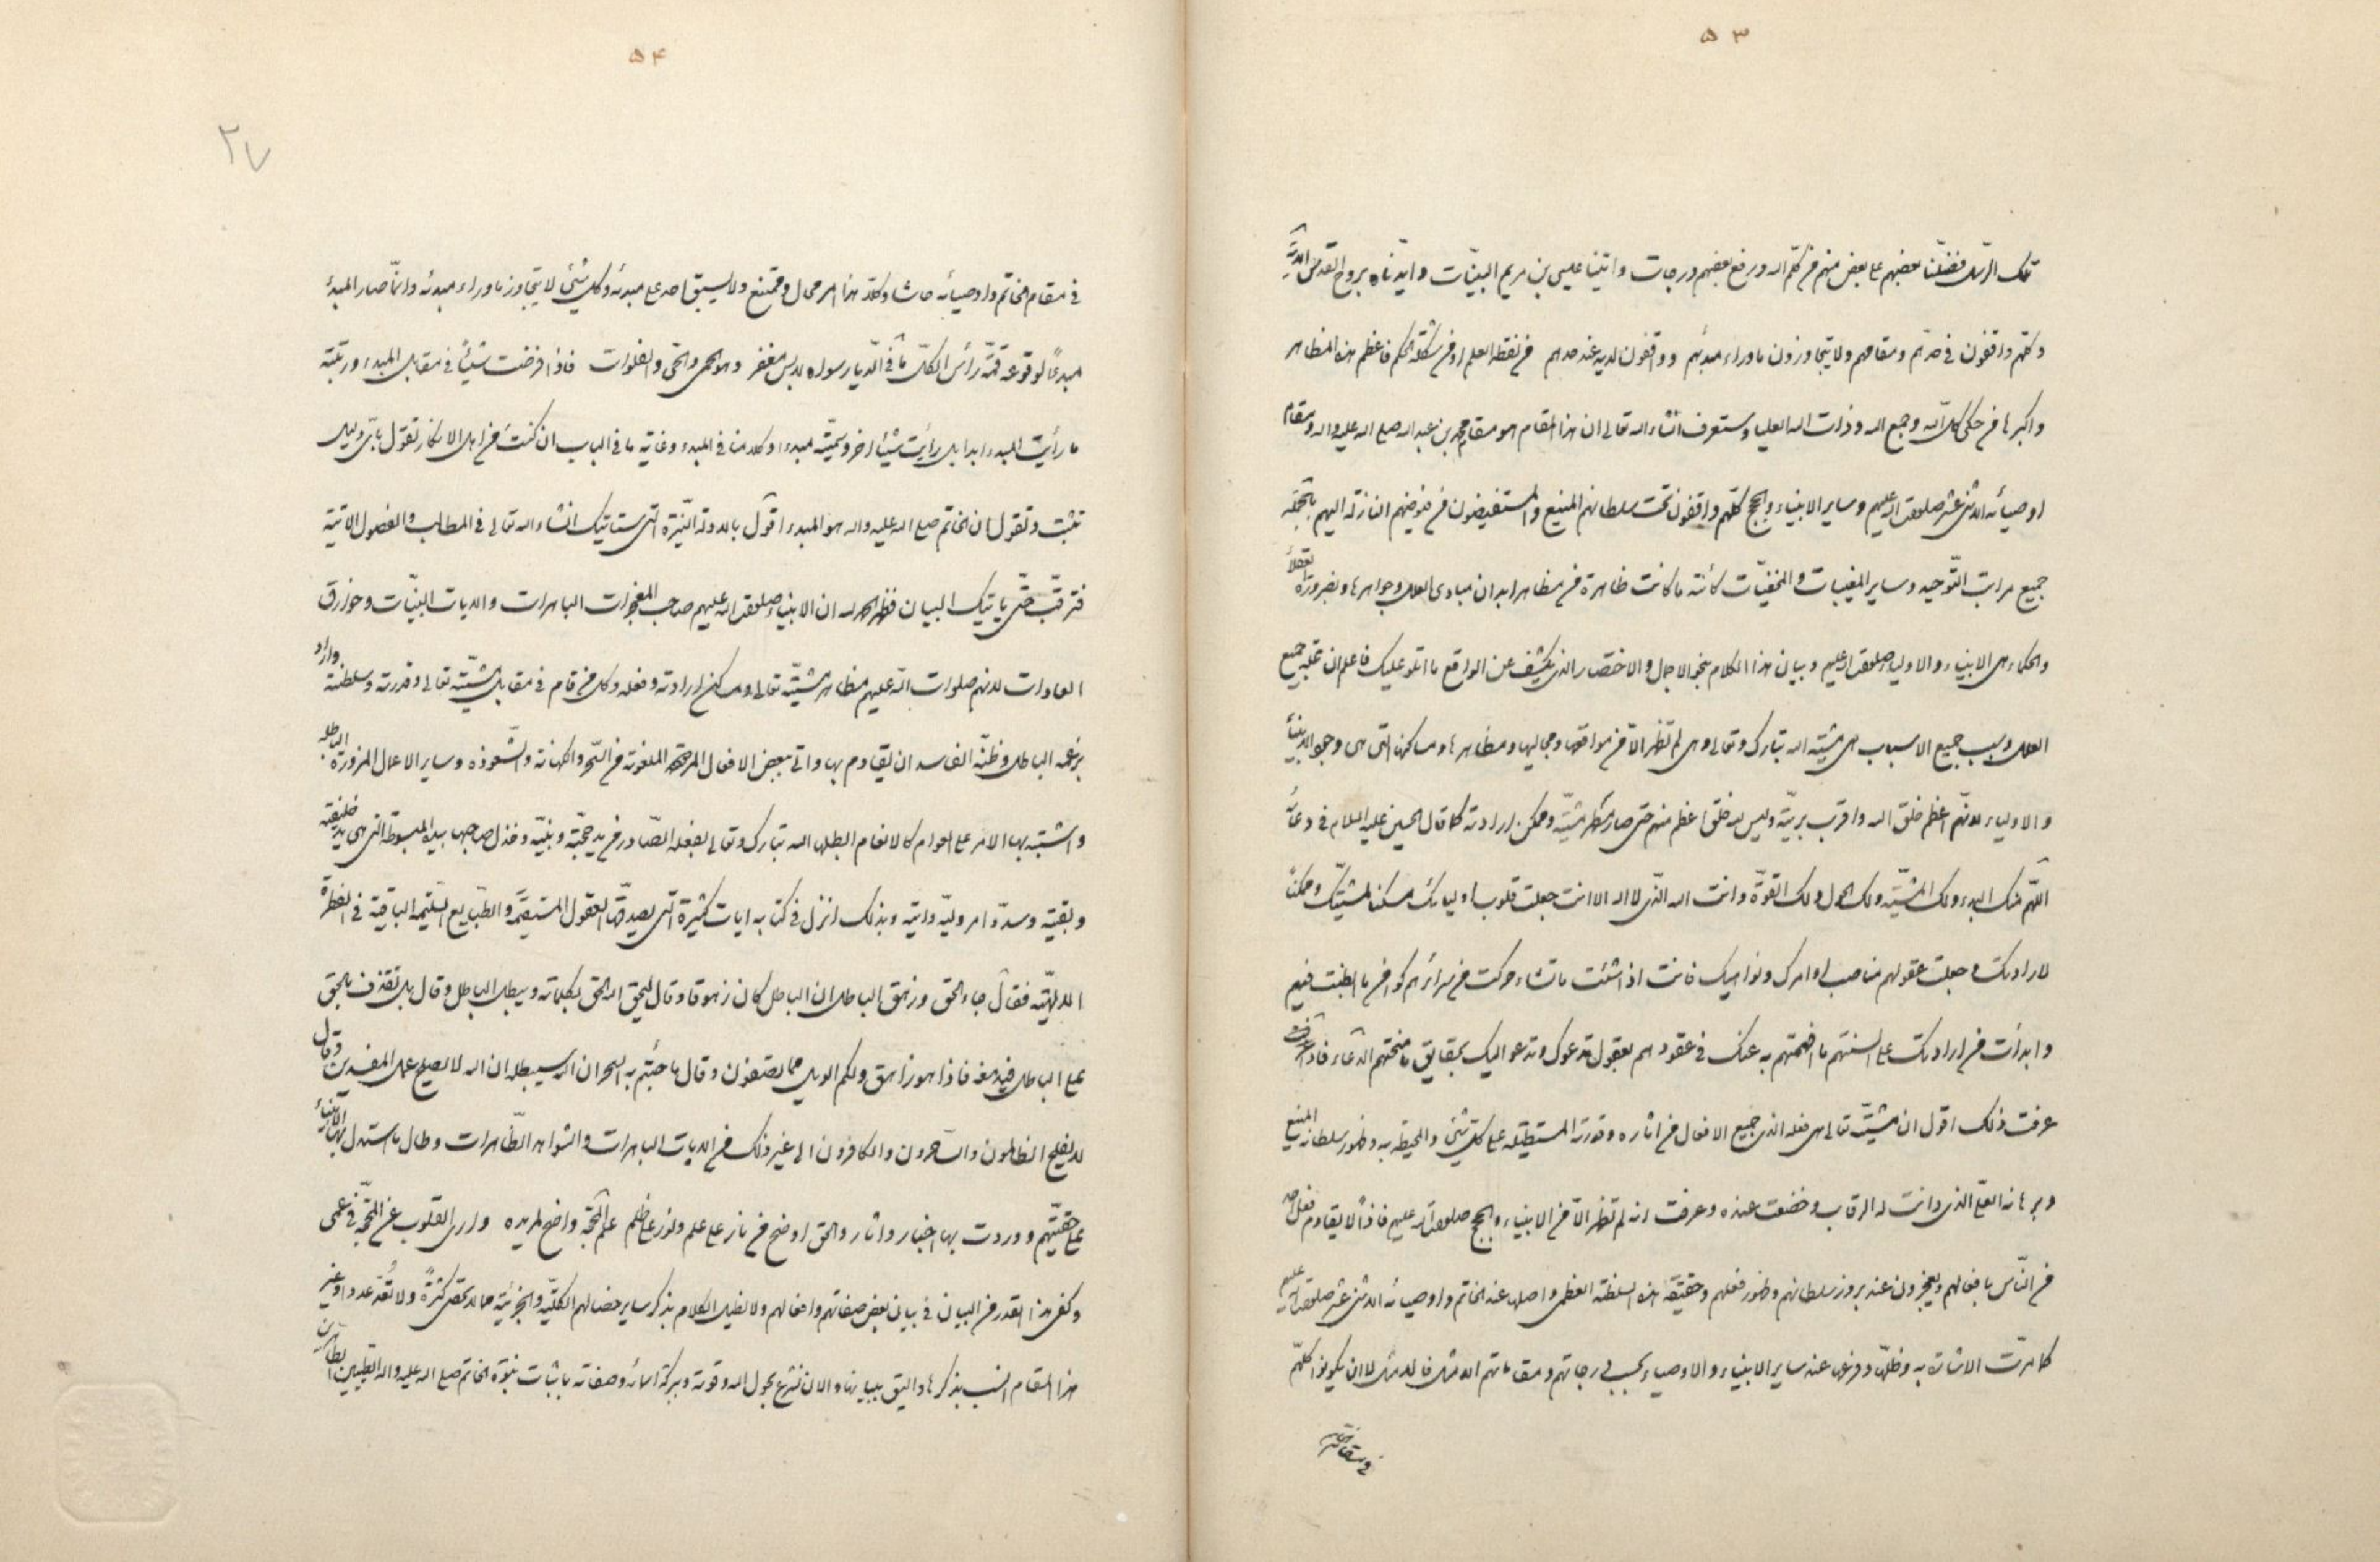 ۵۳
تلك الرّسل فضّلنا بعضهم على بعض منهم من كلّم الله ورفع بعضهم درجات واتينا عليسى بن مريم البيّنات وايّدناه بروح القدس الاية
وكلهم واقفون في حدّهم ومقامهم ولا يتجاوزون ماوراء مبدئهم وواقفون لديه عند حدهم من نقطة العلم او من شكلة الحكم فاعظم هذه المظاهر
واكبرها من حكى كل الله وجمع الله وذات الله العليا وستعرف انشاء الله تعالى ان هذا المقام هو مقام محمد بن عبد الله صلى الله عليه واله ومقام
اوصيائه الاثنى عشر صلوات الله عليهم وساير الانبياء والحجج كلّهم واقفون تحت سلطانهم المنيع والمستفيضون من فيوضهم النازلة اليهم بالجمله
جميع مراتب التّوحيد وساير المغيبات والمخفيّات كائنة ما كانت ظاهرة في مظاهر ابدان مبادى العلل وجواهرها وبضرورة العقلاء
والحكماء هى الانبياء والاولياء صلوات الله عليهم وبيان هذا الكلام بنحو الاجمال والاختصار الذى يكشف عن الواقع ما اتلو عليك فاعلم ان علة جميع
العلل وسبب جميع الاسباب هى مشيّته الله تبارك وتعالى وهى لم تظهر الّا من مواقعها ومجاليها ومظاهرها ومساكنها التى هى وجود الانبياء
والاولياء لانهّم اعظم خلق الله واقرب بريّته وليس لله خلق اعظم منهم حتى صار مظهر مشيّته ومكمن ارادته كما قال الحسين عليه السلام في دعائه
اللّهم منك البدء ولك المشيّة ولك الحول ولك القوّة وانت الله الذّى لا اله الا انت جعلت قلوب اوليائك مسكنا لمشيّتك ومكمناً
لارادتك وجعلت عقولهم مناصب اوامرك ونواهيك فانت اذا شئت ما تشاء حركت من سرائرهم كوامن ما ابطنت فيهم
وابدأت من ارادتك على السنتهم ما افهمتهم به عنك في عقودهم بعقول تدعوك وتدعو اليك بحقايق ما منحتهم الدّعاء فاذا
عرفت ذلك اقول ان مشيّته تعالى هى فعله الذى جميع الافعال من اثاره وقدرته المستطيلة على كلّ شئ والمحيطة به وظهور سلطانه المنيع
وبرهانه القوى الذى دانت له الرقاب وخضعت عنده وعرفت انه لم تظهر الّا من الانبياء والحجج صلوات الله عليهم فاذاً لا يقاوم فعل احد
من النّاس بافعالهم ويعجزون عند بروز سلطانهم وظهور فعلهم وحقيقة هذه السلطنة العظمى واصلها عند الخاتم واوصيائه الاثنى عشر صلوات الله عليهم
كما مرّت الاشارة به وظلّها وفرعها عند ساير الانبياء والاوصياء بحسب درجاتهم ومقاماتهم الامثل فالامثل لا ان يكونوا كلهّم
في مقام الخاتم
۵۴
۲۷
في مقام الخاتم واوصيائه حاشا وكلّا هذا امر محال وممتنع ولا يسبق احد على مبدئه وكل شئ لا يتجاوز ماوراء مبدئه وانّما صار المبدئ
مبدءاً لوقوعه قمّة رأس الكلّ ما في الدّيار سواه لابس مغفر وهو الحمى والحىّ والفلوات فاذا فرضت شيئاً في مقابل المبدء ورتبته
ما رأيت المبدء ابدا بل رأيت شيئا اخر وسميّته مبدء اوكلامنا في المبدء وغاية ما في الباب ان كنت من اهل الانكار تقول باىّ دليل
تثبت وتقول ان الخاتم صلى الله عليه واله هو المبدء اقول بالادلة النّيرة التى ستاتيك انشاء الله تعالى في المطالب والفصول الاتية
فترقّب حتّى ياتيك البيان فظهر لحمد لله ان الانبياء صلوات الله عليهم صاحب المعجزات الباهرات والايات البيّنات وخوارق
العادات لانهم صلوات الله عليهم مظاهر مشيّته تعالى ومساكن ارادته وفعله وكل من قام في مقابل مشيّته تعالى وقدرته وسلطنته واراد
بزعمه الباطل وظنّه الفاسد ان يقاوم بها واتى ببعض الافعال الملعونة من السّحر والكهانة والشّعوذه وساير الاعمال المزورة الباطلة
واشتبه بها الامر على العوام كالانعام ابطلها الله تبارك وتعالى بفعله الصّادر من يد حجّته ونبيّه وخذل صاحبها بيده المبسوطة التى هى يد خليفته
وبقيته وسدّد امر وليّه وايته وبذلك انزل في كتابه ايات كثيرة التى يصدقها العقول المستقيمة والطّبايع السّليمة الباقية في الفطرة
الالهيّه فقال جاء الحق وزهق الباطل ان الباطل كان زهوقا وقال ليحق الله الحق بكلماته ويبطل الباطل وقال بل نقذف بالحق
على الباطل فيدمغه فاذا هو زاهق ولكم الويل مما تصفون وقال ما جئتم به السحر ان الله سيبطله ان الله لا يصلح عمل المفسدين وقال
لايفلح الظالمون والسّاحرون والكافرون الى غير ذلك من الايات الباهرات والشواهد الظّاهرات وطال ما استدل بها الانبياء
على حقيّتهم ووردت بها اخبار واثار والحق اوضح من نار على علم ونور على ظلم علم المحجّة واضح لمريده وارى القلوب عن المحجّة في عمى
وكفى هذا القدر من البيان في بيان بعض صفاتهم وافعالهم ولا نطيل الكلام بذكر ساير خصالهم الكليّة والجزئيّة مما لا تحصى كثرةً ولا تُعدّ عددا وغير
هذا المقام انسب بذكرها واليق ببيانها والان نشرع بحول الله وقوته وبركة اسمائه وصفاته باثبات نبوّة الخاتم صلى الله عليه واله الطيّبين الطاهرين